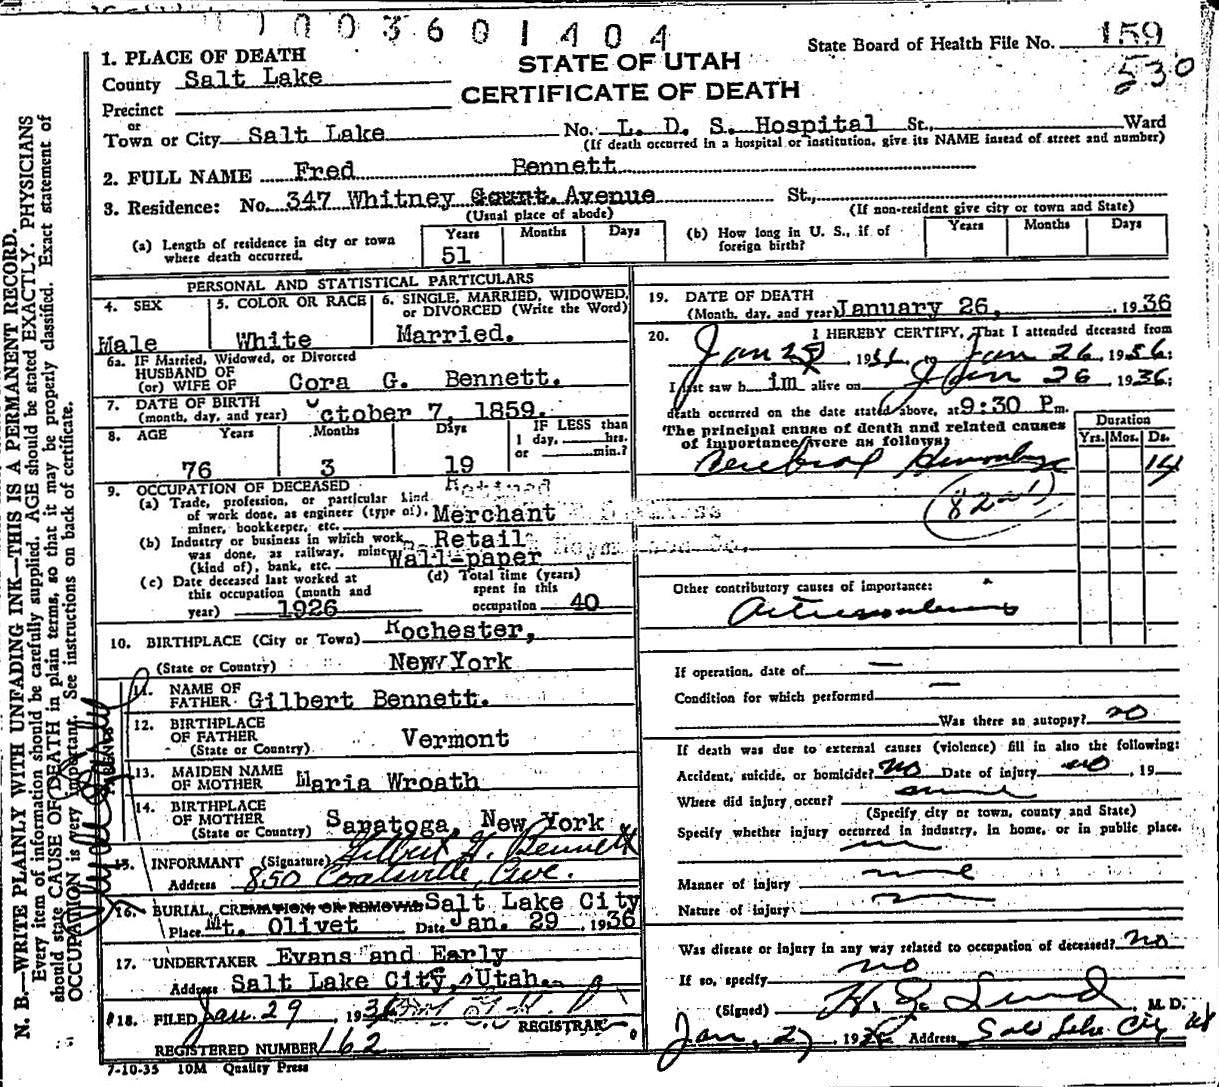 1003601404
State Board of Health File No. 159
530
STATE OF UTAH
CERTIFICATE OF DEATH
1. PLACE OF DEATH
County Salt Lake
Precinct
or
Town or City Salt Lake No. L. D. S. Hospital St., Ward
(If death occurred in a hospital or institution, give its NAME insead of street and number)
2. FULL NAME Fred Bennett
3. Residence: No. 347 Whitney Court. Avenue St.,
(Usual place of abode) (If non-resident give city or town and State)
(a) Length of residence in city or town where death occurred. Years 51 Months Days
(b) How long in U. S., if of foreign birth? Years Months Days
PERSONAL AND STATISTICAL PARTICULARS
4. SEX Male
5. COLOR OR RACE White
6. SINGLE, MARRIED, WIDOWED, or DIVORCED (Write the Word) Married.
6a. IF Married, Widowed, or Divorced
HUSBAND OF
(or) WIFE OF Cora G. Bennett.
7. DATE OF BIRTH
(month, day, and year) October 7, 1859.
8. AGE Years 76 Months 3 Days 19 IF LESS than 1 day, hrs. or min.?
9. OCCUPATION OF DECEASED Retired
(a) Trade, profession, or particular kind
of work done, as engineer (type of), Merchant
miner, bookkeeper, etc.
(b) Industry or business in which work Retail
was done, as railway, mine Wall-paper
(kind of), bank, etc.
(c) Date deceased last worked at
this occupation (month and
year) 1926
(d) Total time (years)
spent in this
occupation 40
10. BIRTHPLACE (City or Town) Rochester,
(State or Country) New York
PARENTS
11. NAME OF
FATHER Gilbert Bennett.
12. BIRTHPLACE
OF FATHER
(State or Country) Vermont
13. MAIDEN NAME
OF MOTHER Maria Wroath
14. BIRTHPLACE
OF MOTHER
(State or Country) Saratoga, New York
15. INFORMANT (Signature) Gilbert H. Bennett
Address 850 Coatsville Ave.
16. BURIAL, CREMATION, OR REMOVAL Salt Lake City
Place Mt. Olivet Date Jan. 29, 1936
17. UNDERTAKER Evans and Early
Address Salt Lake City, Utah.
18. FILED Jan. 29, 1936
REGISTRAR
REGISTERED NUMBER 162
7-10-35 10M Quality Press
19. DATE OF DEATH
(Month, day, and year) January 26, 1936
20. I HEREBY CERTIFY, That I attended deceased from
Jan 25, 1936 to Jan 26, 1936;
I last saw h im alive on Jan 26, 1936;
death occurred on the date stated above, at 9:30 P.m.
The principal cause of death and related causes
of importance were as follows: Duration
Yrs. Mos. Ds.
Cerebral Hemorrhage 14
Other contributory causes of importance:
If operation, date of —
Condition for which performed —
Was there an autopsy? no
If death was due to external causes (violence) fill in also the following:
Accident, suicide, or homicide? no Date of injury no, 19
Where did injury occur?
(Specify city or town, county and State)
Specify whether injury occurred in industry, in home, or in public place.
Manner of injury
Nature of injury
Was disease or injury in any way related to occupation of deceased? no
If so, specify no
(Signed) M. D.
Jan. 27 1936 Address Salt Lake City
N. B.—WRITE PLAINLY WITH UNFADING INK—THIS IS A PERMANENT RECORD.
Every item of information should be carefully supplied. AGE should be stated EXACTLY. PHYSICIANS
should state CAUSE OF DEATH in plain terms, so that it may be properly classified. Exact statement of
OCCUPATION is very important. See instructions on back of certificate.